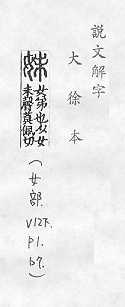 說文解字
大徐本
妹
女弟也从女
未聲莫佩切
(女部.
V12下.
P1.
b7.)